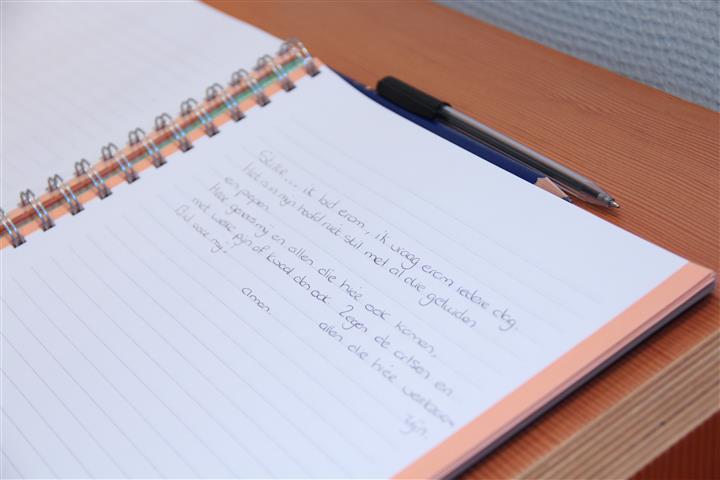 Stilte... ik bid erom, ik vraag erom iedere dag.
Het is in mijn hoofd niet stil met al die geluiden
en piepen.
Heer genees mij en allen die hier ook komen,
met welke pijn of kwaal dan ook. Zegen de artsen en
Bid voor mij!
allen die hier werkzaam
zijn.
amen.